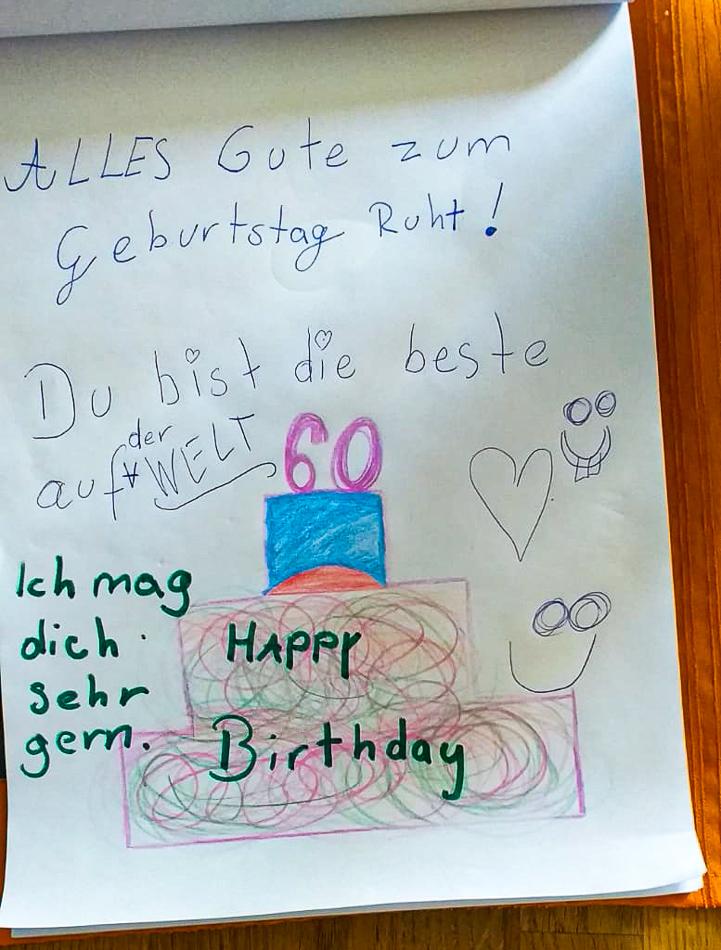 ALLES Gute zum
Geburtstag Ruht!
Du bist die beste
auf der WELT
60
Ich mag
dich
sehr
gern.
HAPPY
Birthday